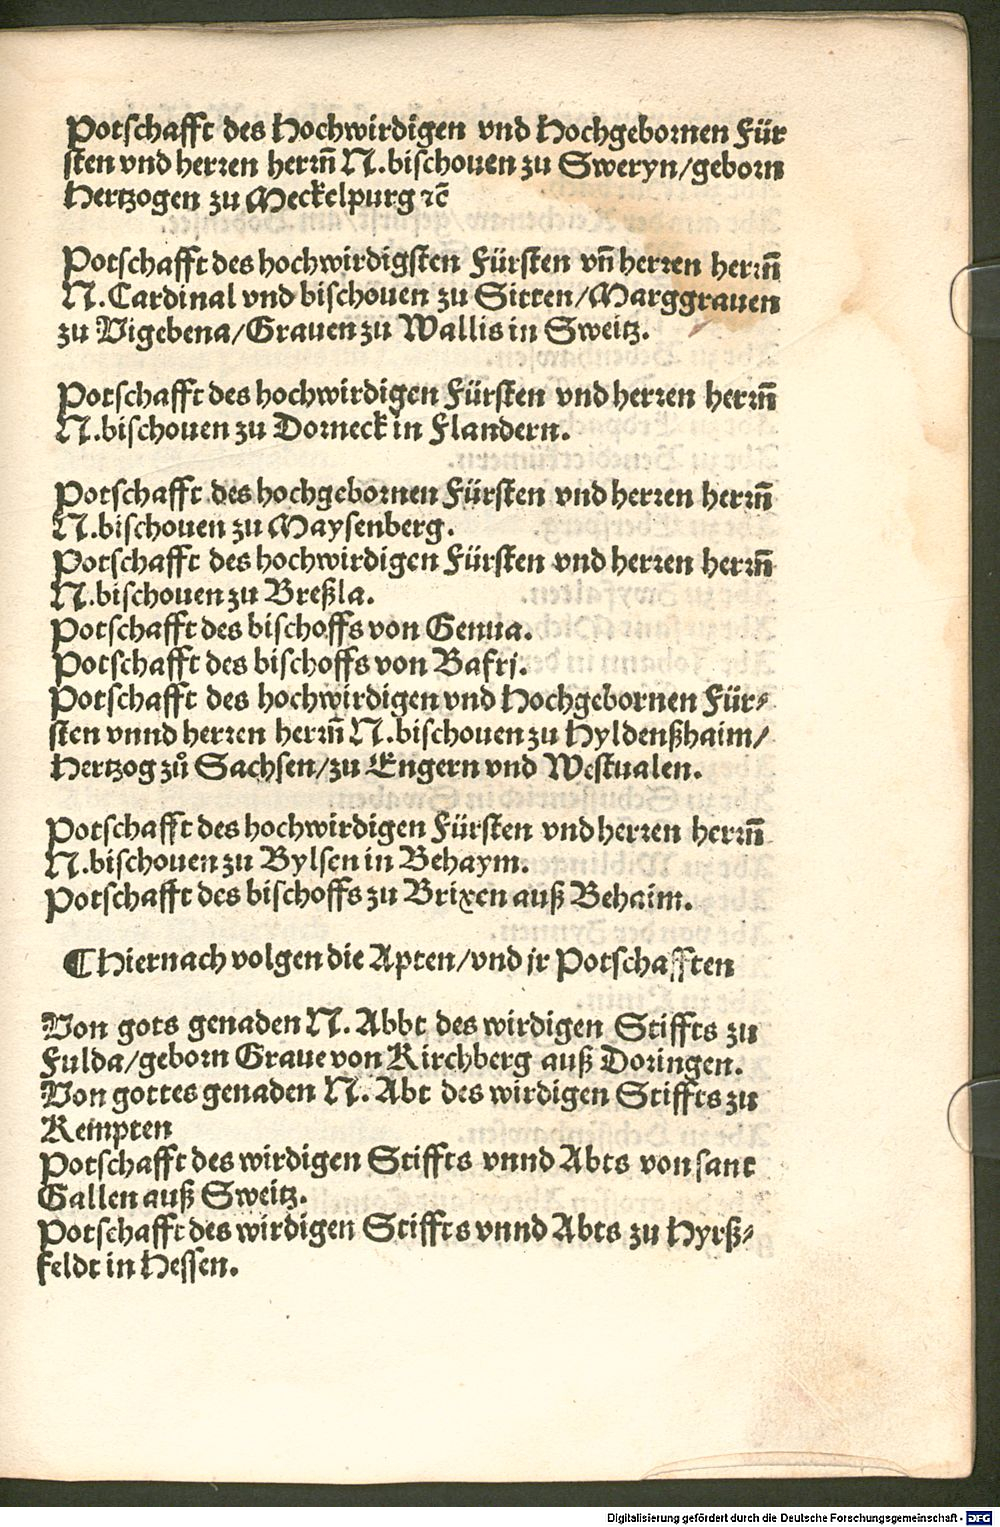 Potschafft des Hochwirdigen vnd Hochgebornen Für
sten vnd herren herrñ N.bischouen zu Sweryn/geborn
Hertzogen zu Meckelpurg ⁊c̄
Potschafft des hochwirdigsten Fürsten vñ herren herrñ
N.Cardinal vnd bischouen zu Sitten/Marggrauen
zu Vigebena/Grauen zu Wallis in Sweitz.
Potschafft des hochwirdigen Fürsten vnd herren herrñ
N.bischouen zu Dorneck in Flandern.
Potschafft des hochgebornen Fürsten vnd herren herrñ
N.bischouen zu Maysenberg.
Potschafft des hochwirdigen Fürsten vnd herren herrñ
N.bischouen zu Breßla.
Potschafft des bischoffs von Genua.
Potschafft des bischoffs von Bafrj.
Potschafft des hochwirdigen vnd Hochgebornen Für⸗
sten vnnd herren herrñ N.bischouen zu Hyldenßhaim/
Hertzog zů Sachsen/zu Engern vnd Westualen.
Potschafft des hochwirdigen Fürsten vnd herren herrñ
N.bischouen zu Bylsen in Behaym.
Potschafft des bischoffs zu Brixen auß Behaim.
¶Hiernach volgen die Apten/vnd jr Potschafften
Von gots genaden N. Abbt des wirdigen Stiffts zu
Fulda/geborn Graue von Kirchberg auß Doringen.
Von gottes genaden N. Abt des wirdigen Stiffts zu
Kempten
Potschafft des wirdigen Stiffts vnnd Abts von sant
Gallen auß Sweitz.
Potschafft des wirdigen Stiffts vnnd Abts zu Hyrß⸗
feldt in Hessen.
Digitalisierung gefördert durch die Deutsche Forschungsgemeinschaft - DFG